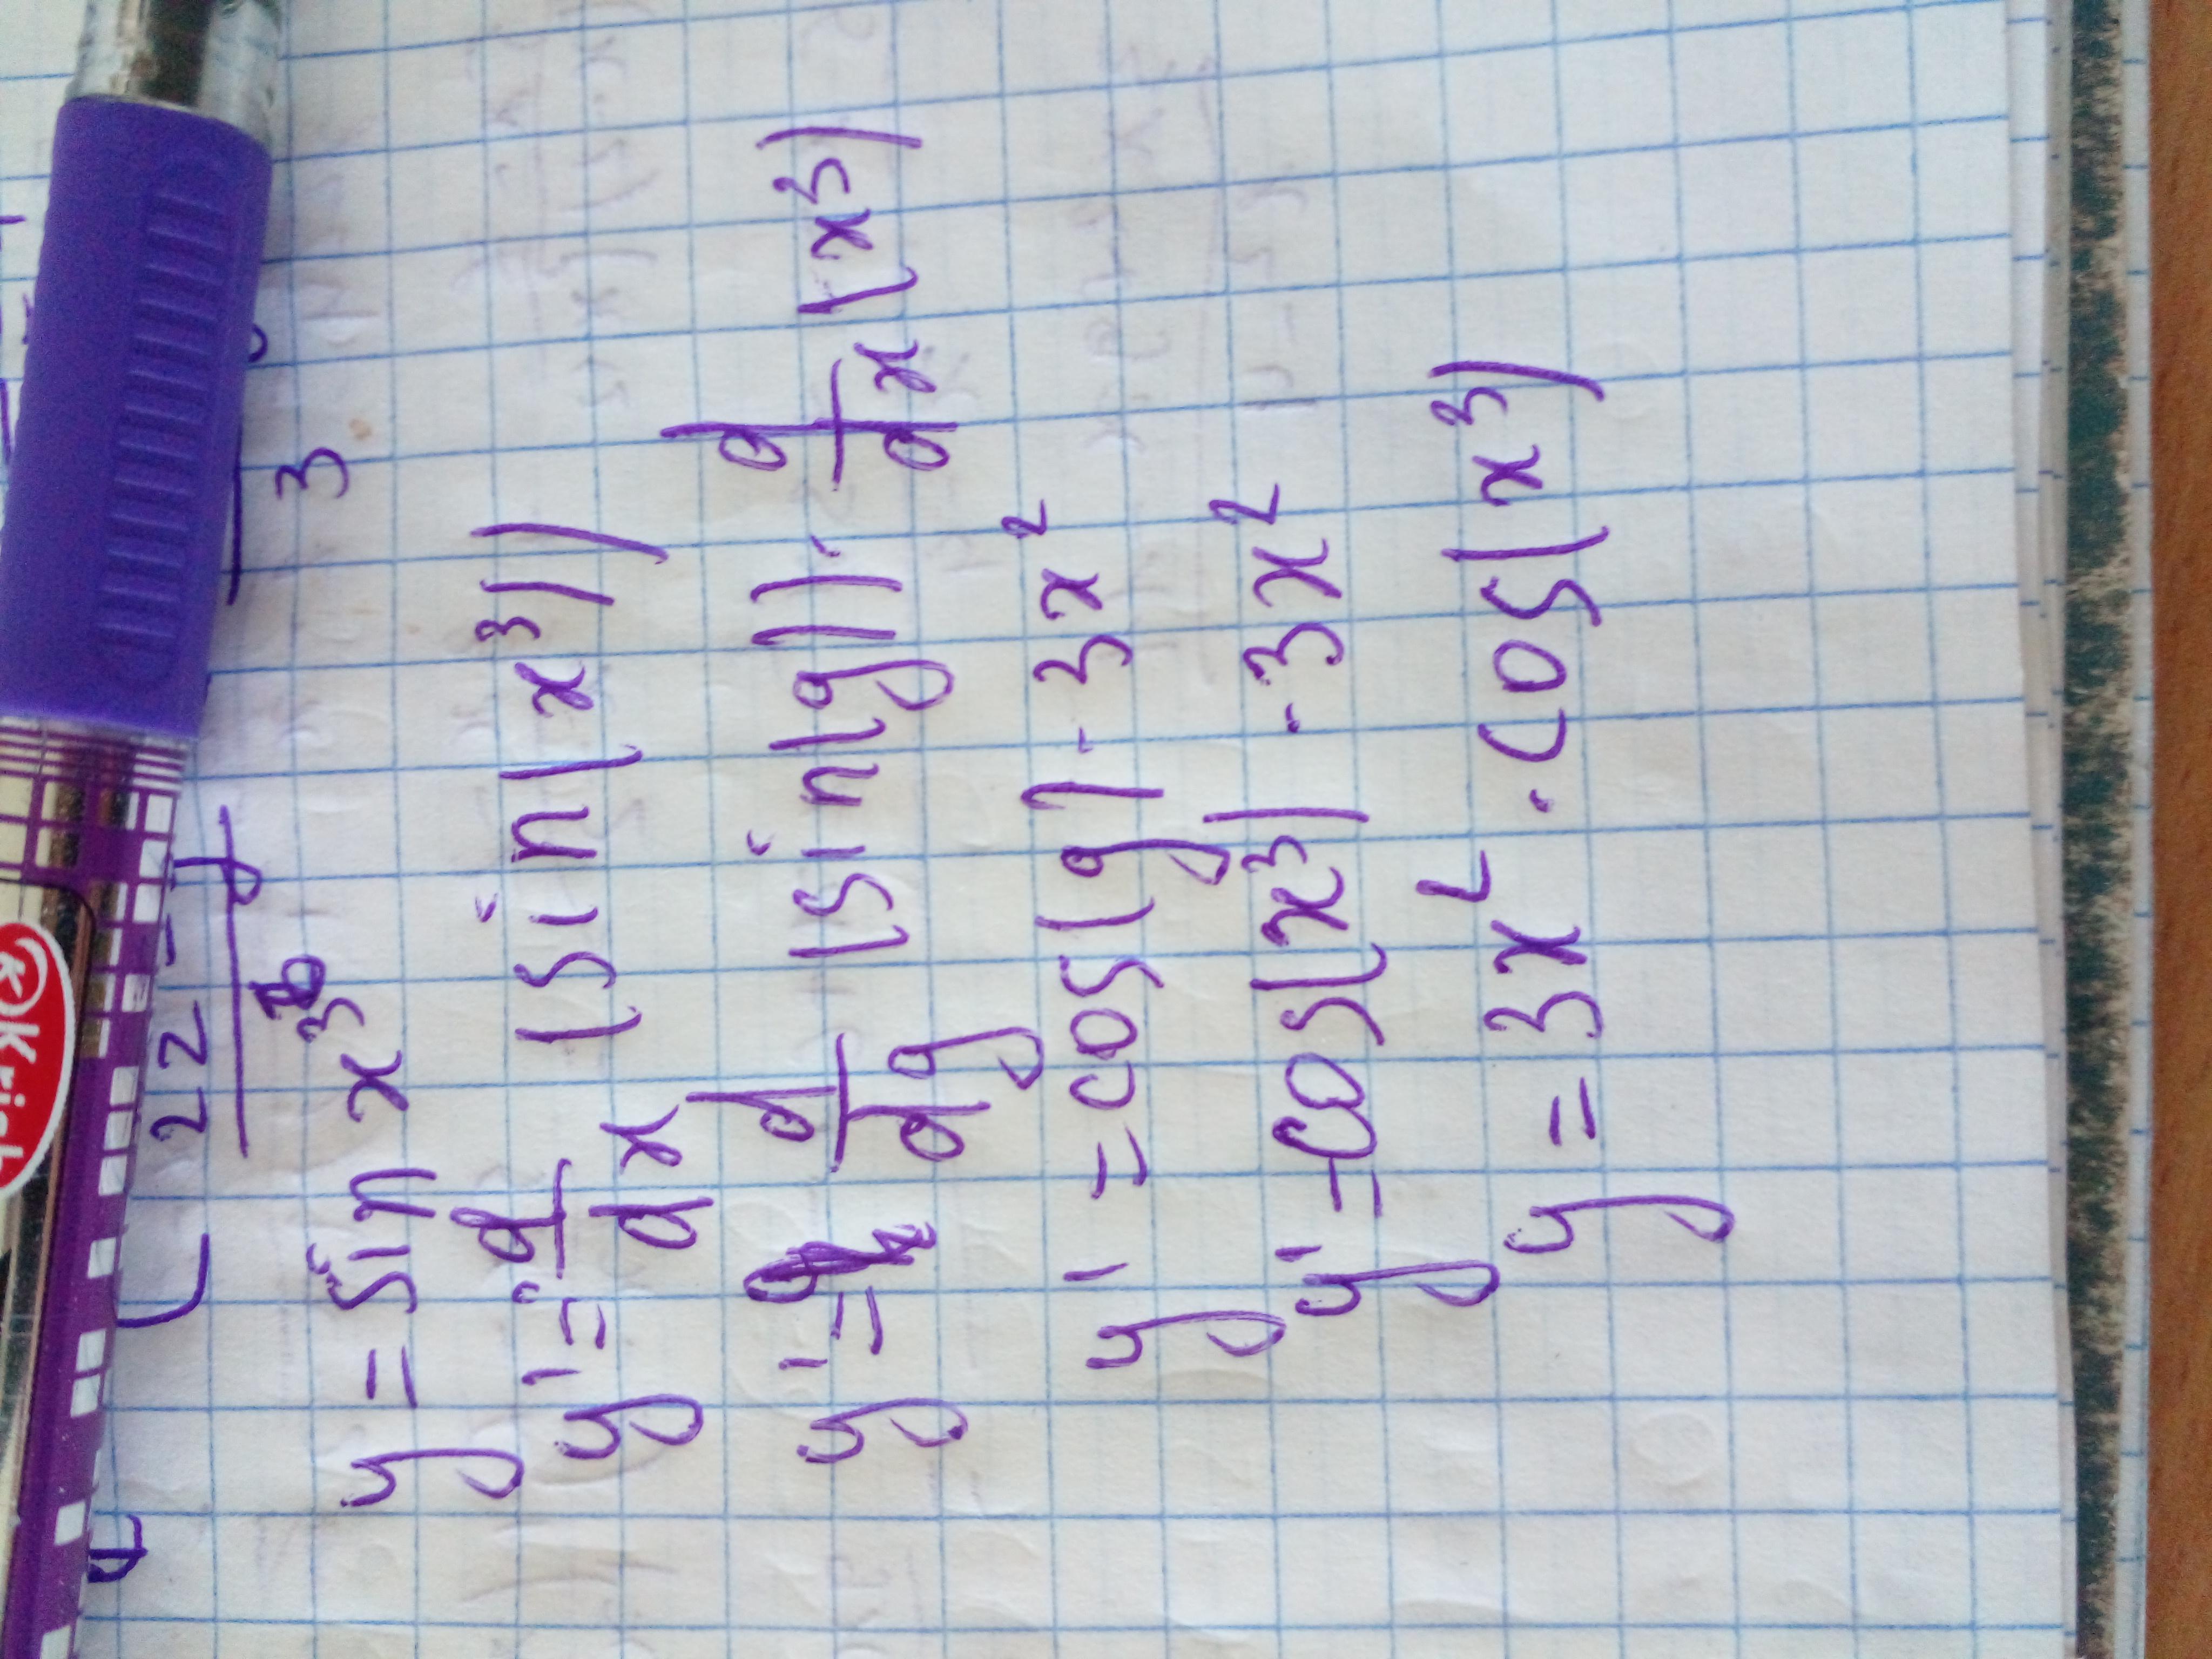 y = sin x³
y' = d/dx (sin(x³))
y' = d/dg (sin(g)) · d/dx (x³)
y' = cos(g) · 3x²
y' = cos(x³) · 3x²
y = 3x² · cos(x³)